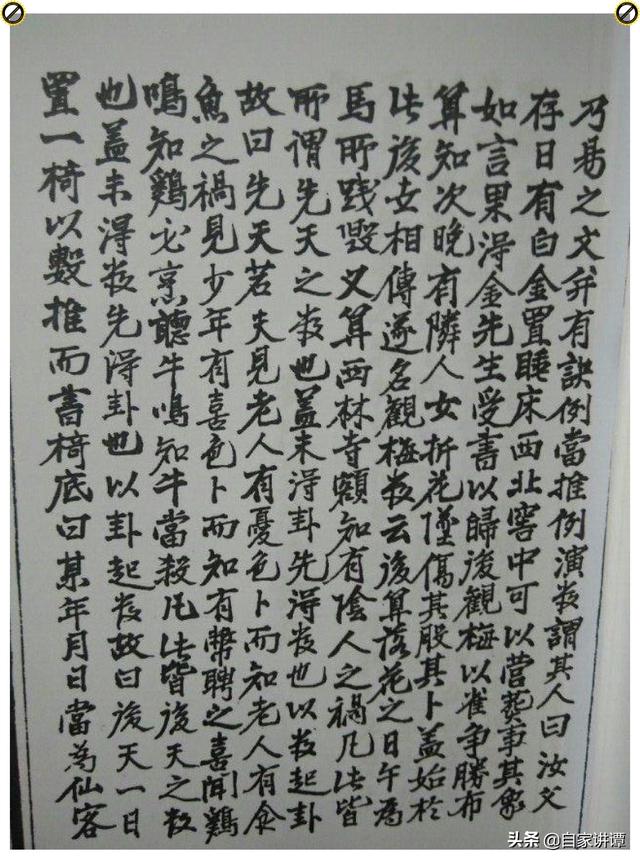 乃易之文并有訣例當推例演数謂其人曰汝父
存日有白金置睡床西北窖中可以营葬事其家
如言果得金先生受書以歸後觀梅以雀争勝布
算知次晚有隣人女折花墜傷其股其卜盖始於
此後女相傳遂名觀梅数云後算落花之日午為
馬所践毁又算西林寺額知有陰人之禍凡此皆
所謂先天之数也盖未得卦先得数也以数起卦
故曰先天若夫見老人有憂色卜而知老人有
魚之禍見少年有喜色卜而知有幣聘之喜聞鷄
鳴知鷄必烹聽牛鳴知牛當殺凡此皆後天之数
也盖未得数先得卦也以卦起数故曰後天一日
置一椅以數推而書椅底曰某年月日當為仙客
头条 @自家讲谭